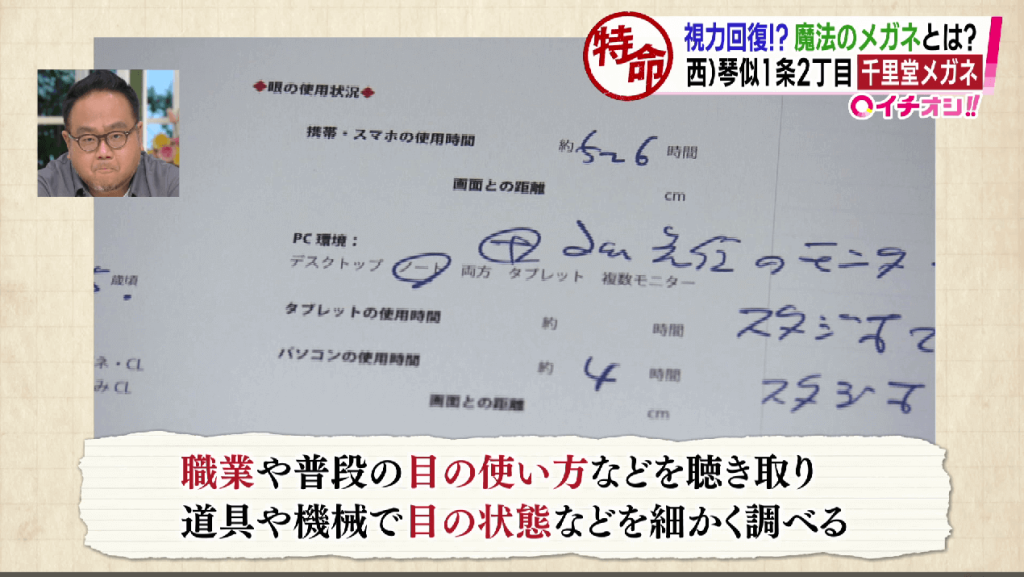 特命
視力回復!? 魔法のメガネとは?
西)琴似1条2丁目 千里堂メガネ
イチオシ!!
眼の使用状況
携帯・スマホの使用時間 約 5~6 時間
画面との距離 cm
PC 環境:
デスクトップ ノート 両方 タブレット 複数モニター
のモニタ
歳頃
タブレットの使用時間 約 時間
スタジオで
ネ・CL
パソコンの使用時間 約 4 時間
みCL
スタジオ
画面との距離 cm
職業や普段の目の使い方などを聴き取り
道具や機械で目の状態などを細かく調べる